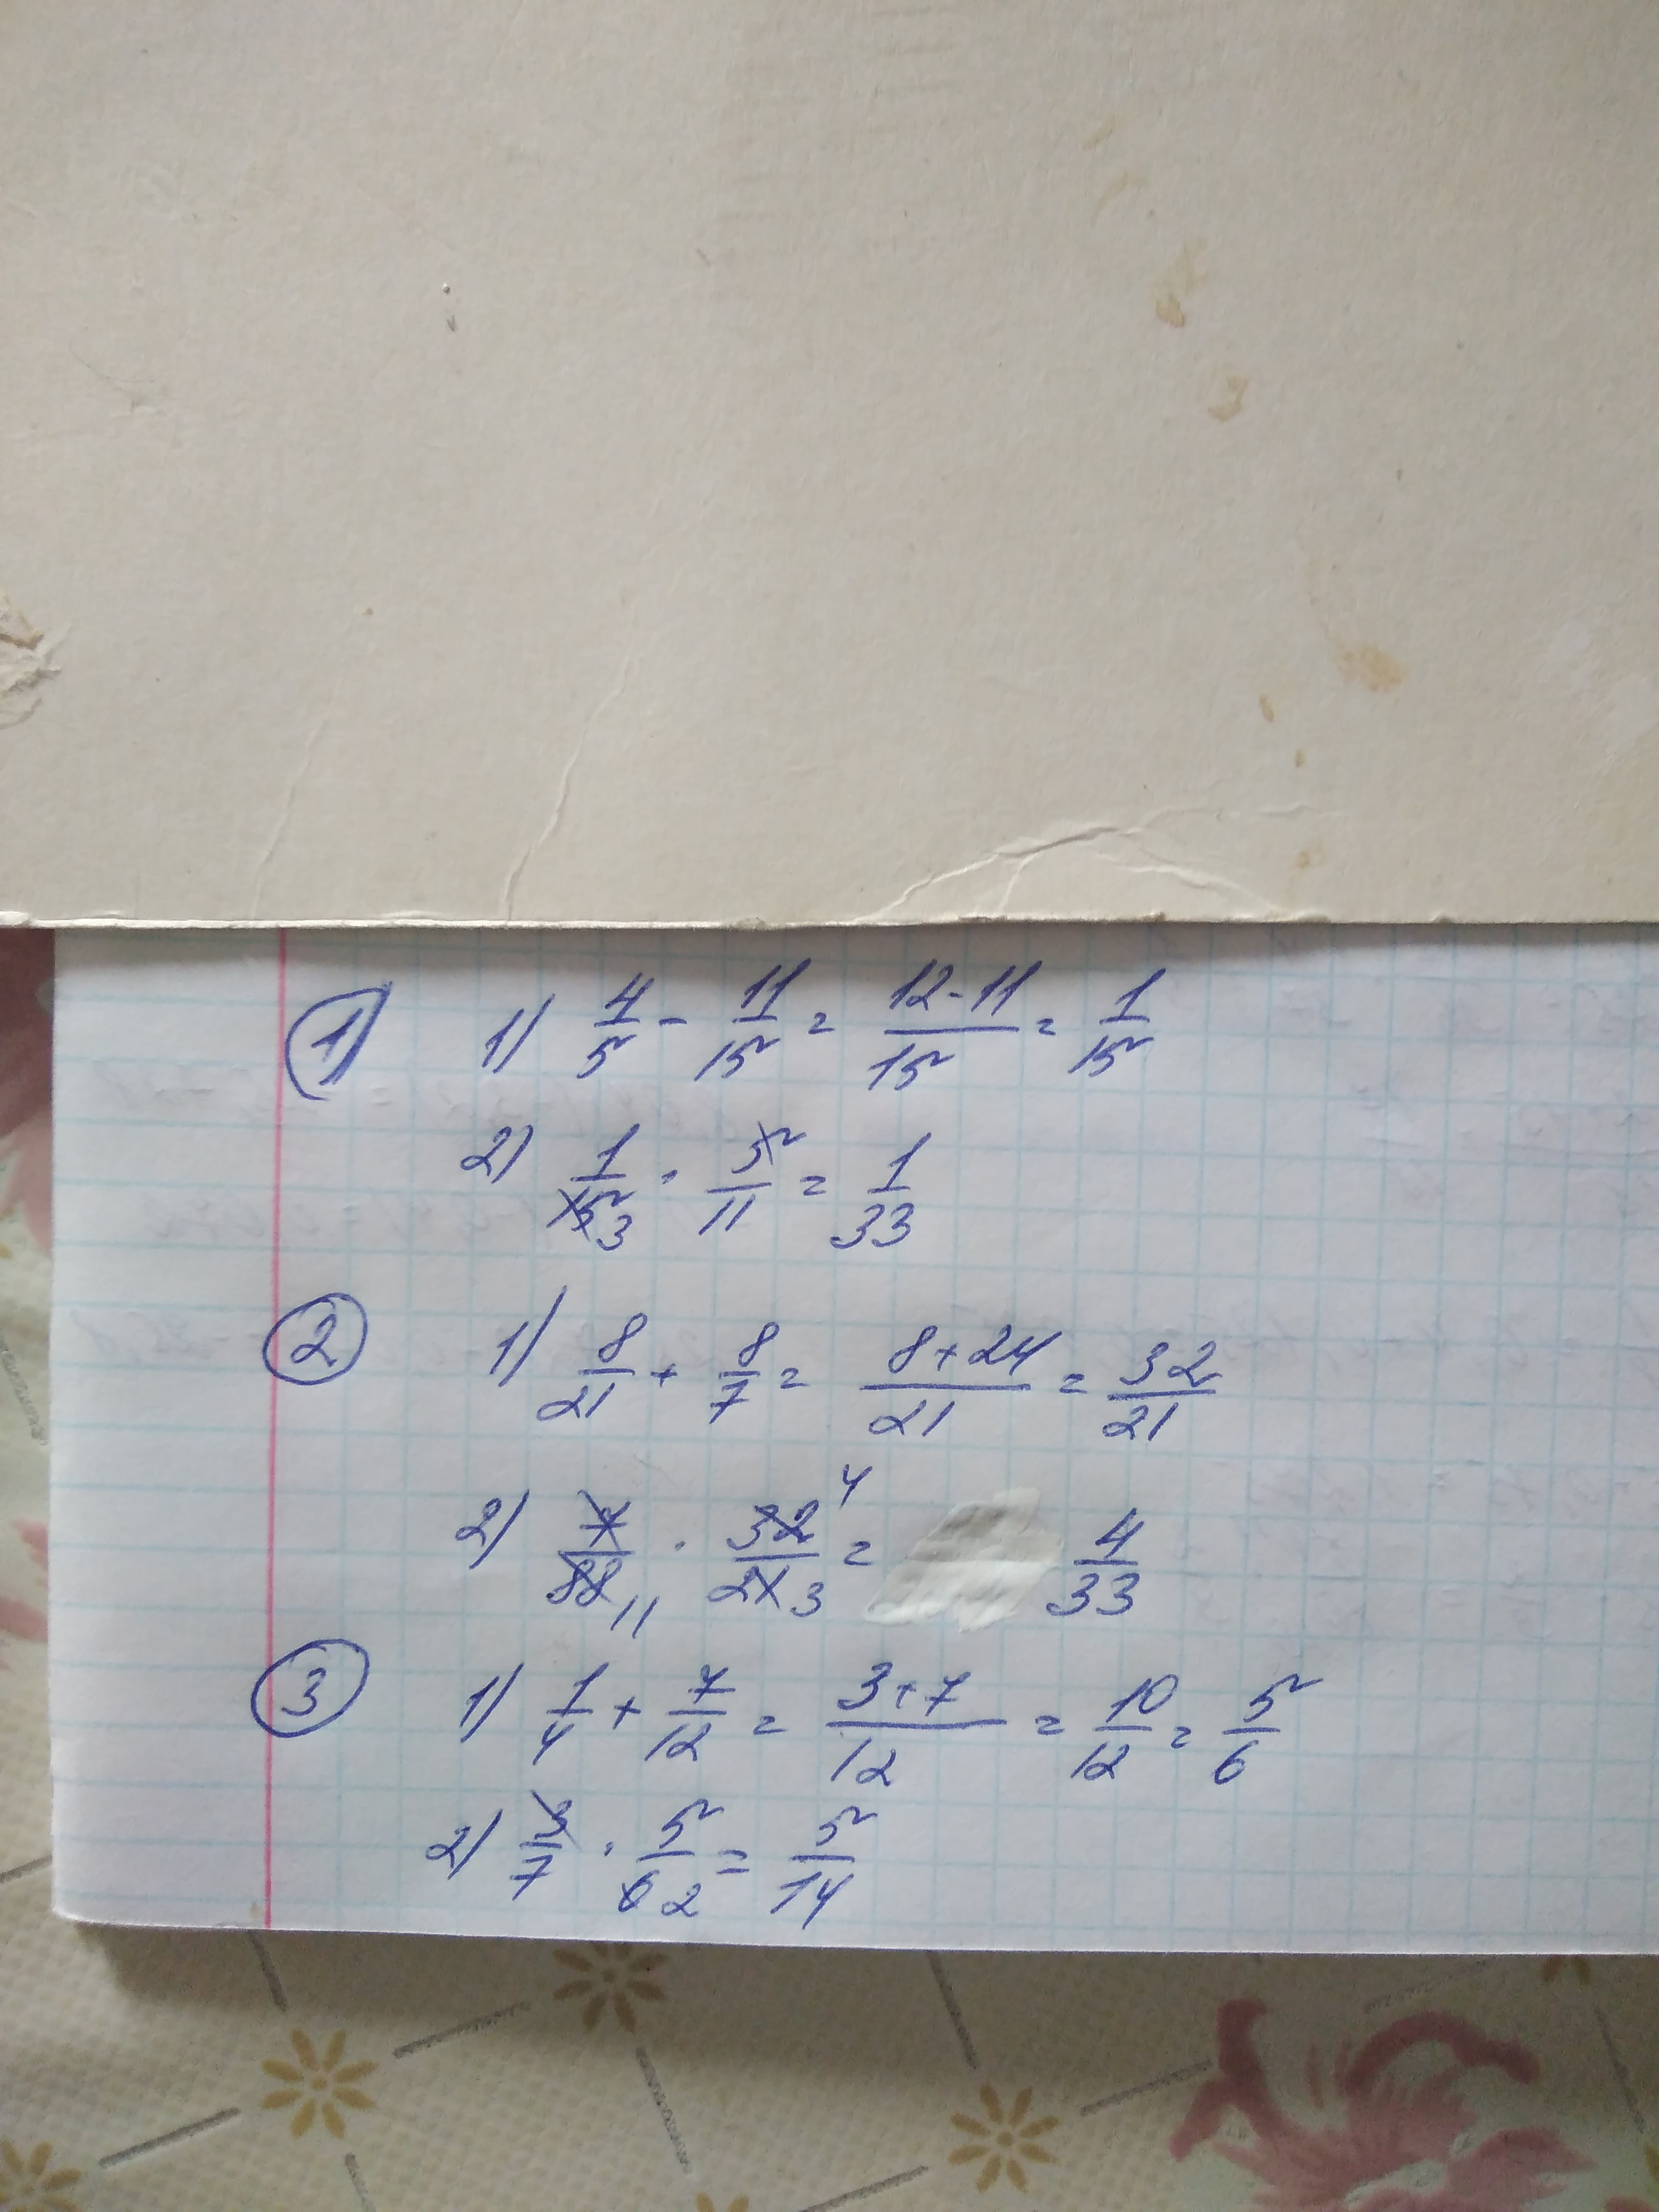 1) 1) 4/5 - 11/15 = 12-11/15 = 1/15
2) 1/15 3 · 5/11 = 1/33
2 1) 8/21 + 8/7 = 8+24/21 = 32/21
2) 7/88 11 · 32 4/21 3 = 4/33
3 1) 1/4 + 7/12 = 3+7/12 = 10/12 = 5/6
2) 3/7 · 5/6 2 = 5/14